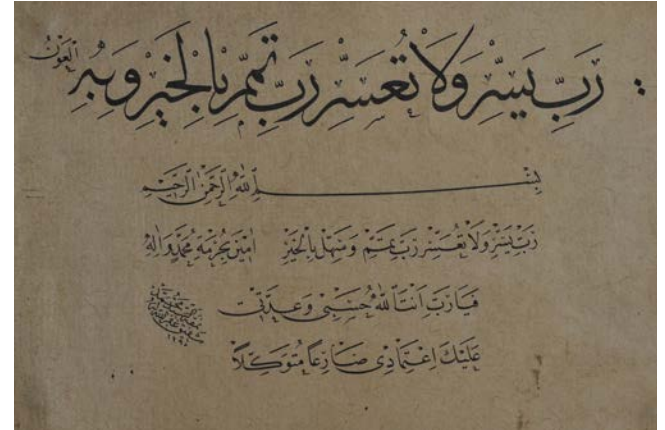 رَبِّ يَسِّرْ وَلَا تُعَسِّرْ رَبِّ تَمِّمْ بِالْخَيْرِ وَبِهِ الْعَوْنُ
بِسْمِ اللّٰهِ الرَّحْمٰنِ الرَّحِيمِ
رَبِّ يَسِّرْ وَلَا تُعَسِّرْ رَبِّ تَمِّمْ وَسَهِّلْ بِالْخَيْرِ اٰمِينَ بِحُرْمَةِ مُحَمَّدٍ وَاٰلِهِ
فَيَا رَبِّ اَنْتَ اللّٰهُ حَسْبِي وَعُدَّتِي
عَلَيْكَ اعْتِمَادِي ضَارِعًا مُتَوَكِّلًا